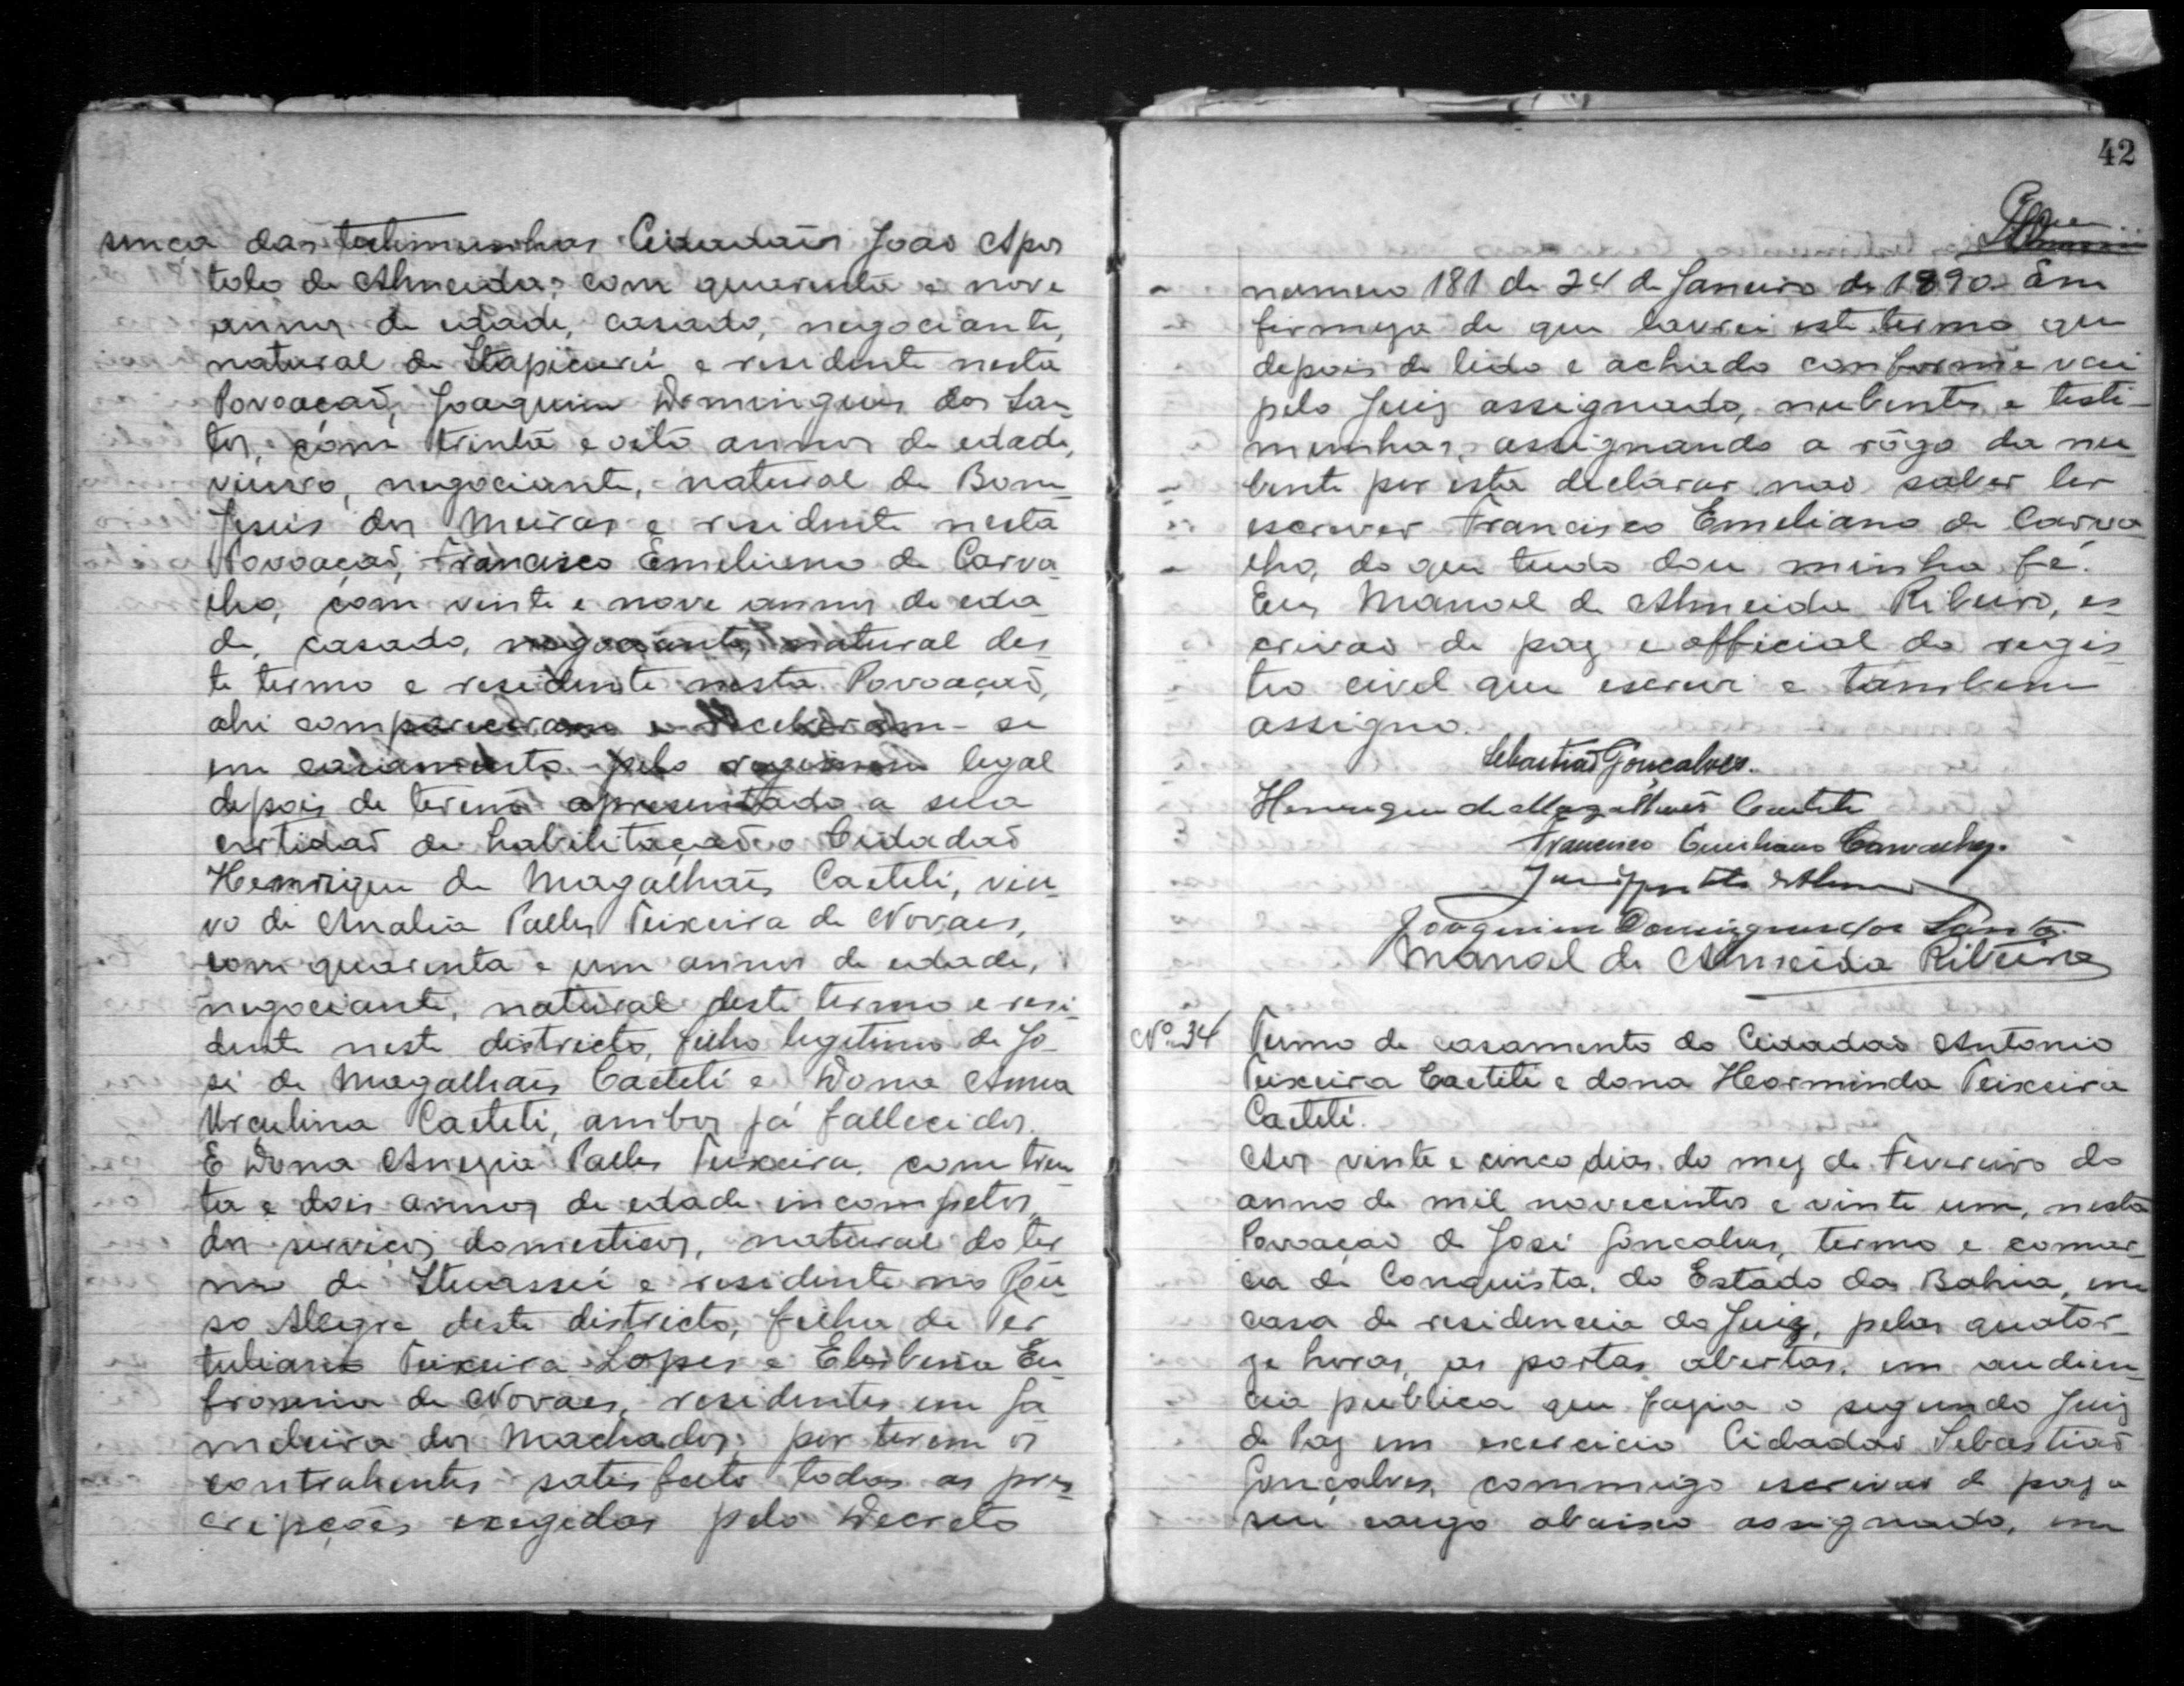 sença das testimunhas Cidadãis João Apos
tolo de Almeida, com quarenta e nove
annos de edade, casado, negociante,
natural de Itapicurú e residente nesta
Povoação, Joaquim Domingues dos San-
tos, com trinta e oito annos de edade,
viuvo, negociante, natural de Bom
Jesus dos Meiras e residente nesta
Povoação, Francisco Emeliano de Carva-
lho, com vinte e nove annos de eda
de, casado, negociante, natural des
te termo e residente nesta Povoação,
ahi compareceram e receberam-se
em casamento pelo regimem legal
depois de terem apresentado a sua
certidão de habilitação o Cidadão
Henrique de Magalhais Caeteté, viu-
vo de Analia Teixeira de Novaes,
com quarenta e um annos de edade,
negociante, natural deste termo e resi-
dente neste districto, filho legitimo de Jo
sé de Magalhais Caeteté e Dona Anna
Urculina Caeteté, ambos já fallecidos.
E Dona Teixeira, com trin
ta e dois annos de edade incompletos,
dos serviços domesticos, natural do ter
mo de Ituassú e residente no Pou-
so Alegre deste districto, filha de Ter
tuliano Teixeira Lopes e Eu
frosina de Novaes, residentes em Ga
meleira dos Machados, por terem os
contrahentes satisfeito todas as pres-
cripções exegidas pelo Decreto
42
numero 181 de 24 de Janeiro de 1890. Em
firmeza de que lavrei este termo que
depois de lido e achado conforme vai
pelo Juiz assignado, nubentes e testi-
munhas, assignando a rôgo da nu
bente por esta declarar não saber ler
escrever Francisco Emeliano de Carva
lho, do que tudo dou minha fé.
Eu, Manoel de Almeida Ribeiro, es
crivão de paz e official do regis
tro civel que escrevi e tambem
assigno.
Sebastião Gonçalves.
Henrique de Magalhães Caeteté
Francisco Emiliano Carvalho.
Joaquim Domingues dos Santos
Manoel de Almeida Ribeiro
Nº 34 Termo de casamento do Cidadão Antonio
Teixeira Caetité e dona Heorminda Teixeira
Caeteté.
Aos vinte e cinco dias do mez de Fevereiro do
anno de mil novecentos e vinte um, nesta
Povoação de José Gonçalves, termo e comar-
ca de Conquista, do Estado da Bahia, em
casa de residencia do Juiz, pelas quator-
ze horas, as portas abertas, em audien-
cia publica que fazia o segundo Juiz
de Paz em excercicio Cidadão Sebastião
Gonçalves, commigo escrivão de paz a
seu cargo abaixo assignado, em